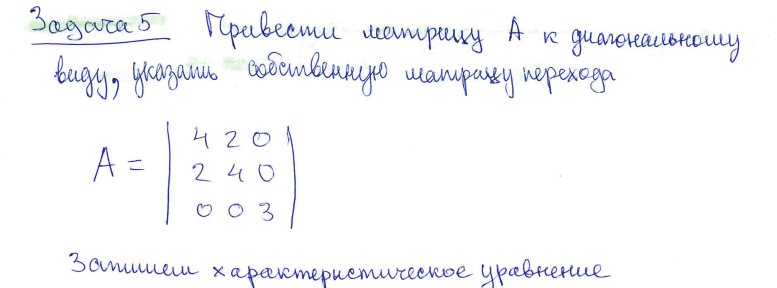 Задача 5 Привести матрицу А к диагональному
виду, указать собственную матрицу перехода
A = | 4 2 0 |
| 2 4 0 |
| 0 0 3 |
Запишем характеристическое уравнение